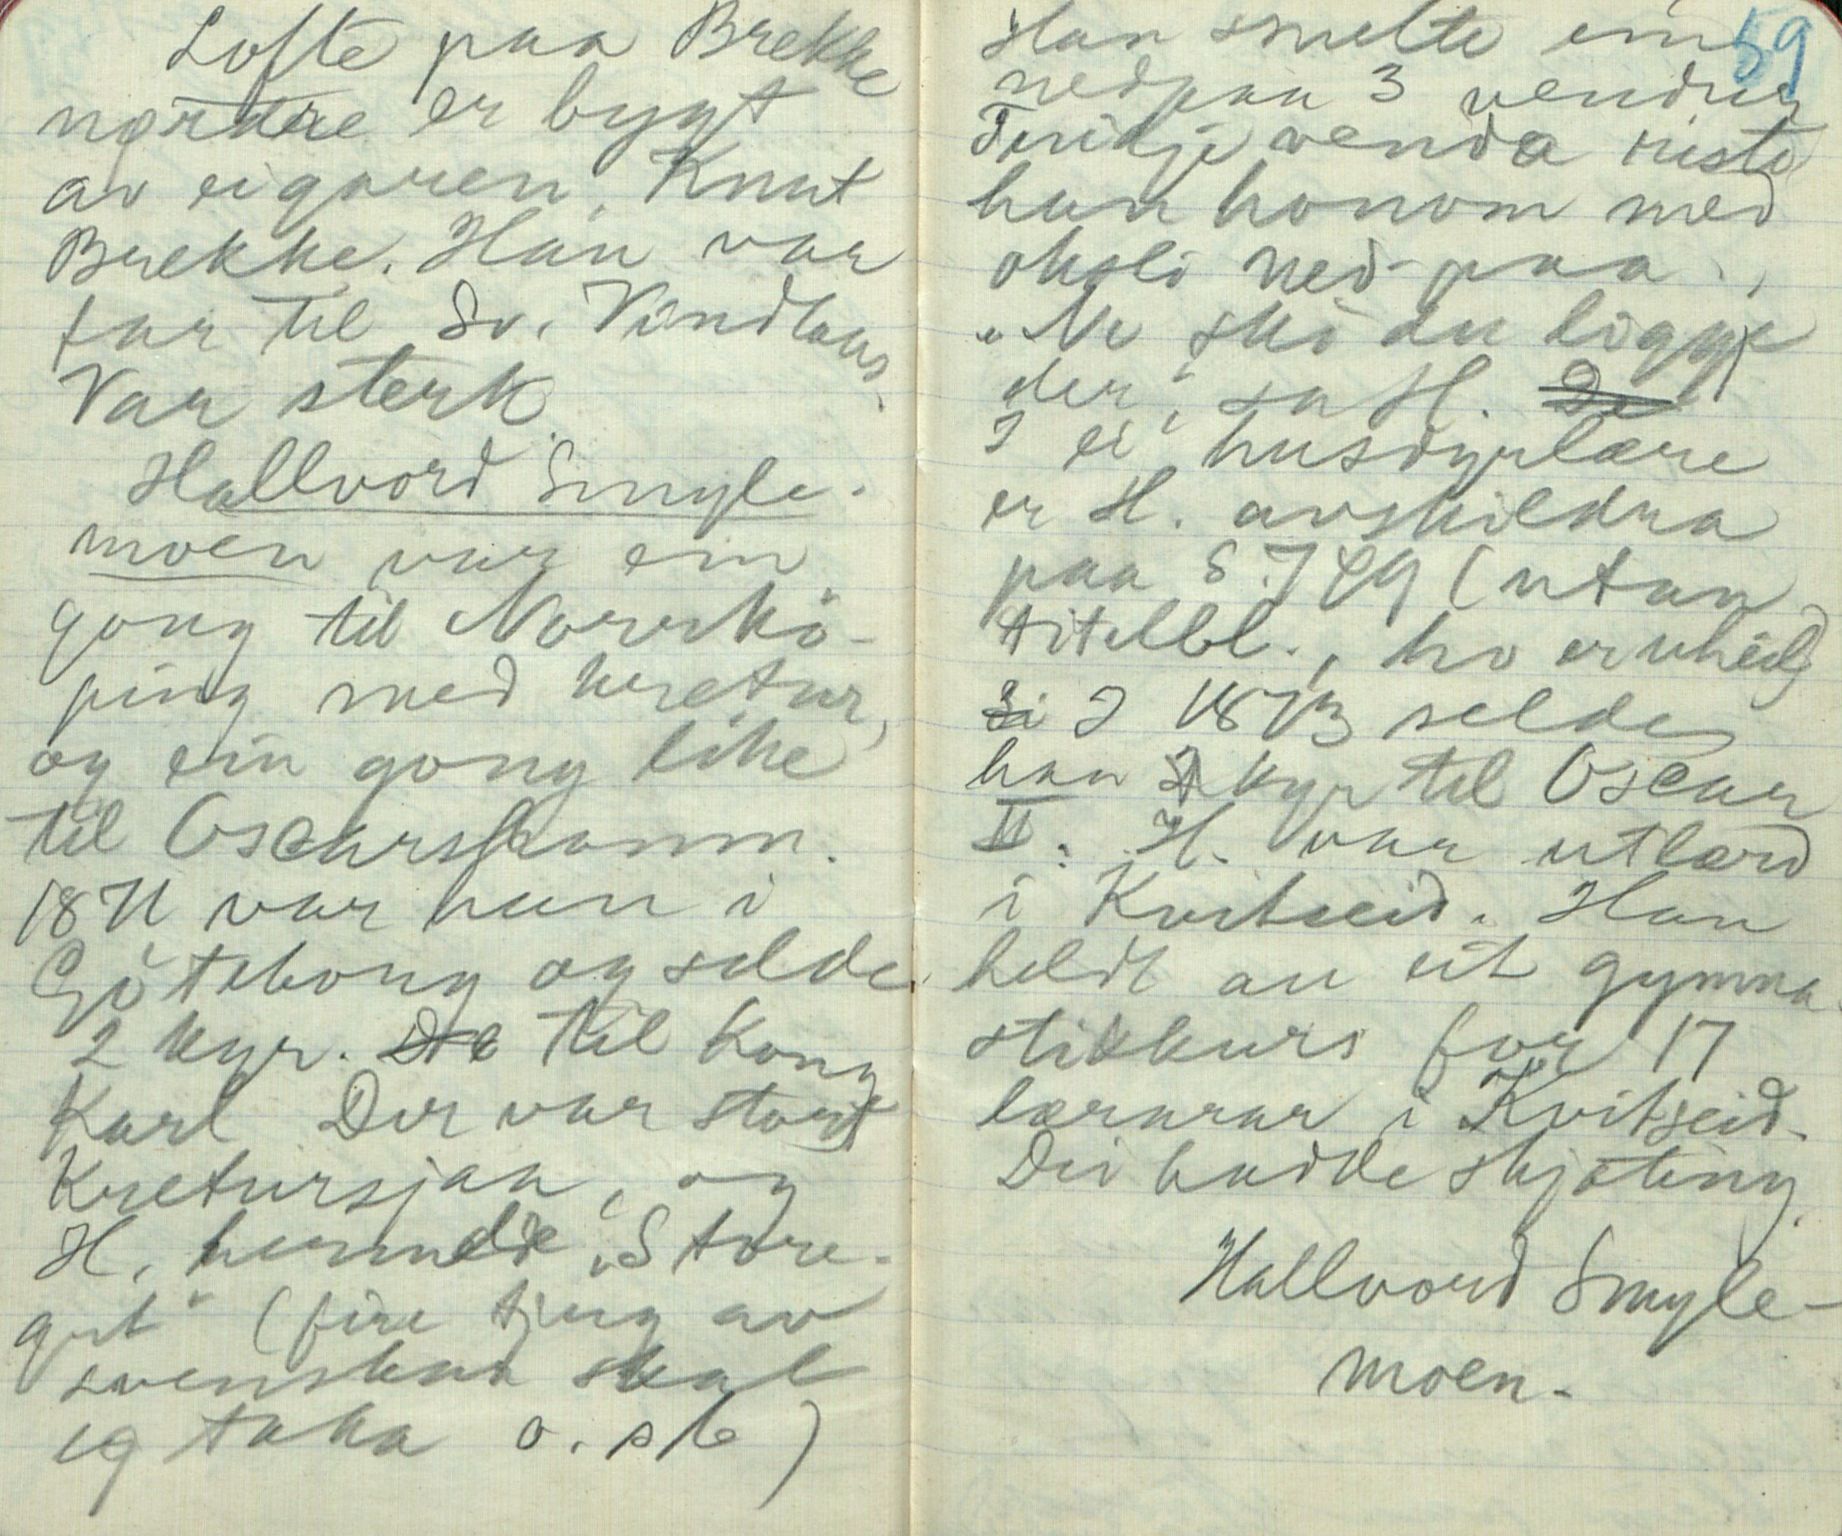 Lofte paa Brekke
nørdre er bygt
av eigaren, Knut
Brekke. Han var
far til Sv. Vindlaus.
Var sterk.
Hallvord Smyle-
moen var ein
gong til Norrkö-
ping med kretur,
og ein gong like
til Oscarshamn.
1871 var han i
Göteborg og selde
2 kyr. til kong
Karl Der var stor
Kretursjaa, og
H. hermde "Store-
gut" (fire tjug av
svenskan skal
eg taka o. sb)
59
Han smelte ein
nedpaa 3 vendur
Tridje venda riste
han honom med
oksli ned-paa.
"No ska du liggje
der", sa H. De
I ei husdyrlære
er H. avskildra
paa S. 749 (utan
titelbl., ho er uheil)
I 1873 selde
han 2 kyr til Oscar
II. H. var utlærd
i Kvitseid. Han
heldt au eit gymna-
stikkurs for 17
lærarar i Kvitseid.
Dei hadde skjøting.
Hallvord Smyle-
moen.